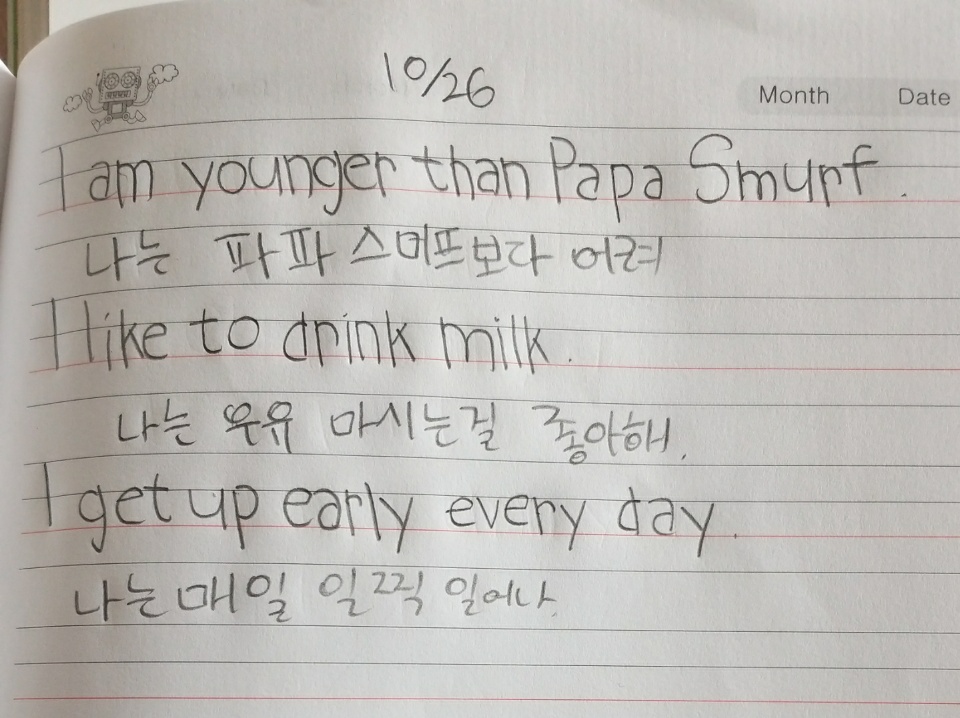 10/26
Month Date
I am younger than Papa Smurf.
나는 파파 스머프보다 어려
I like to drink milk.
나는 우유 마시는걸 좋아해.
I get up early every day.
나는 매일 일찍 일어나.